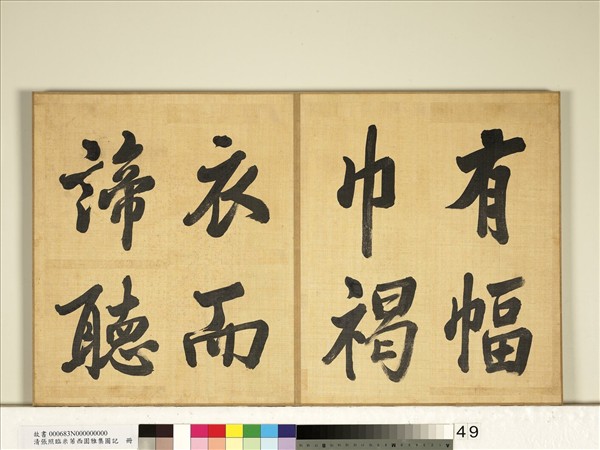 有幅
巾褐
衣而
諦聽
故書 000683N000000000
清張照臨米芾西園雅集圖記 冊
49